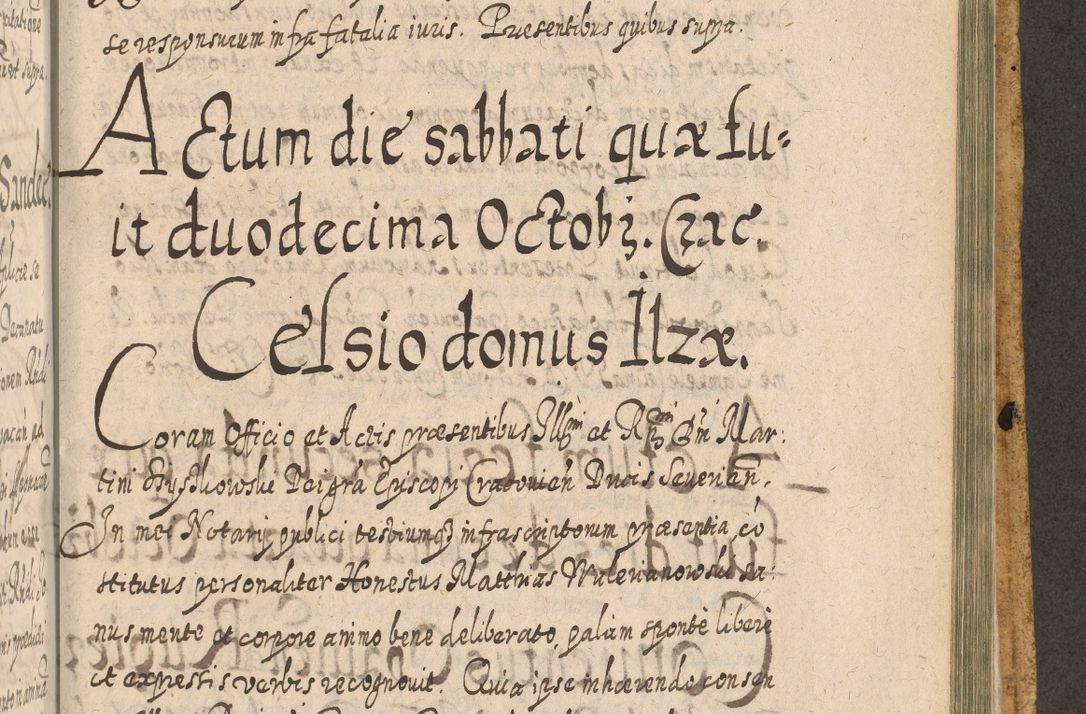 se responsurum infra fatalia iuris. Praesentibus quibus supra.
Actum die sabbati quæ fu-
it duodecima Octobȝ. Crac.
Celsio domus Ilzæ.
Coram Officio et Actis præsentibus Illmi et Rmi Dni Mar:
tini Szyszkowski Dei grã Episcopi Cracovień Ducis Severień.
In mei Notarij publici testiumqȝ infrascriptorum præsentia, cõ
stitutus personaliter Honestus Matthias Walerianowski sa:
nus mente et corpore animo bene deliberato, palam sponte libere
et expressis verbis recognovit. Quia ipse inhærendo consen